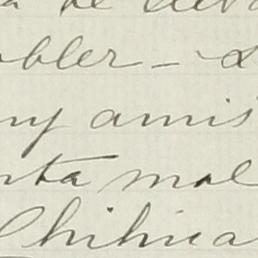 a de
bler -
ny amis
nta mal
Chihua